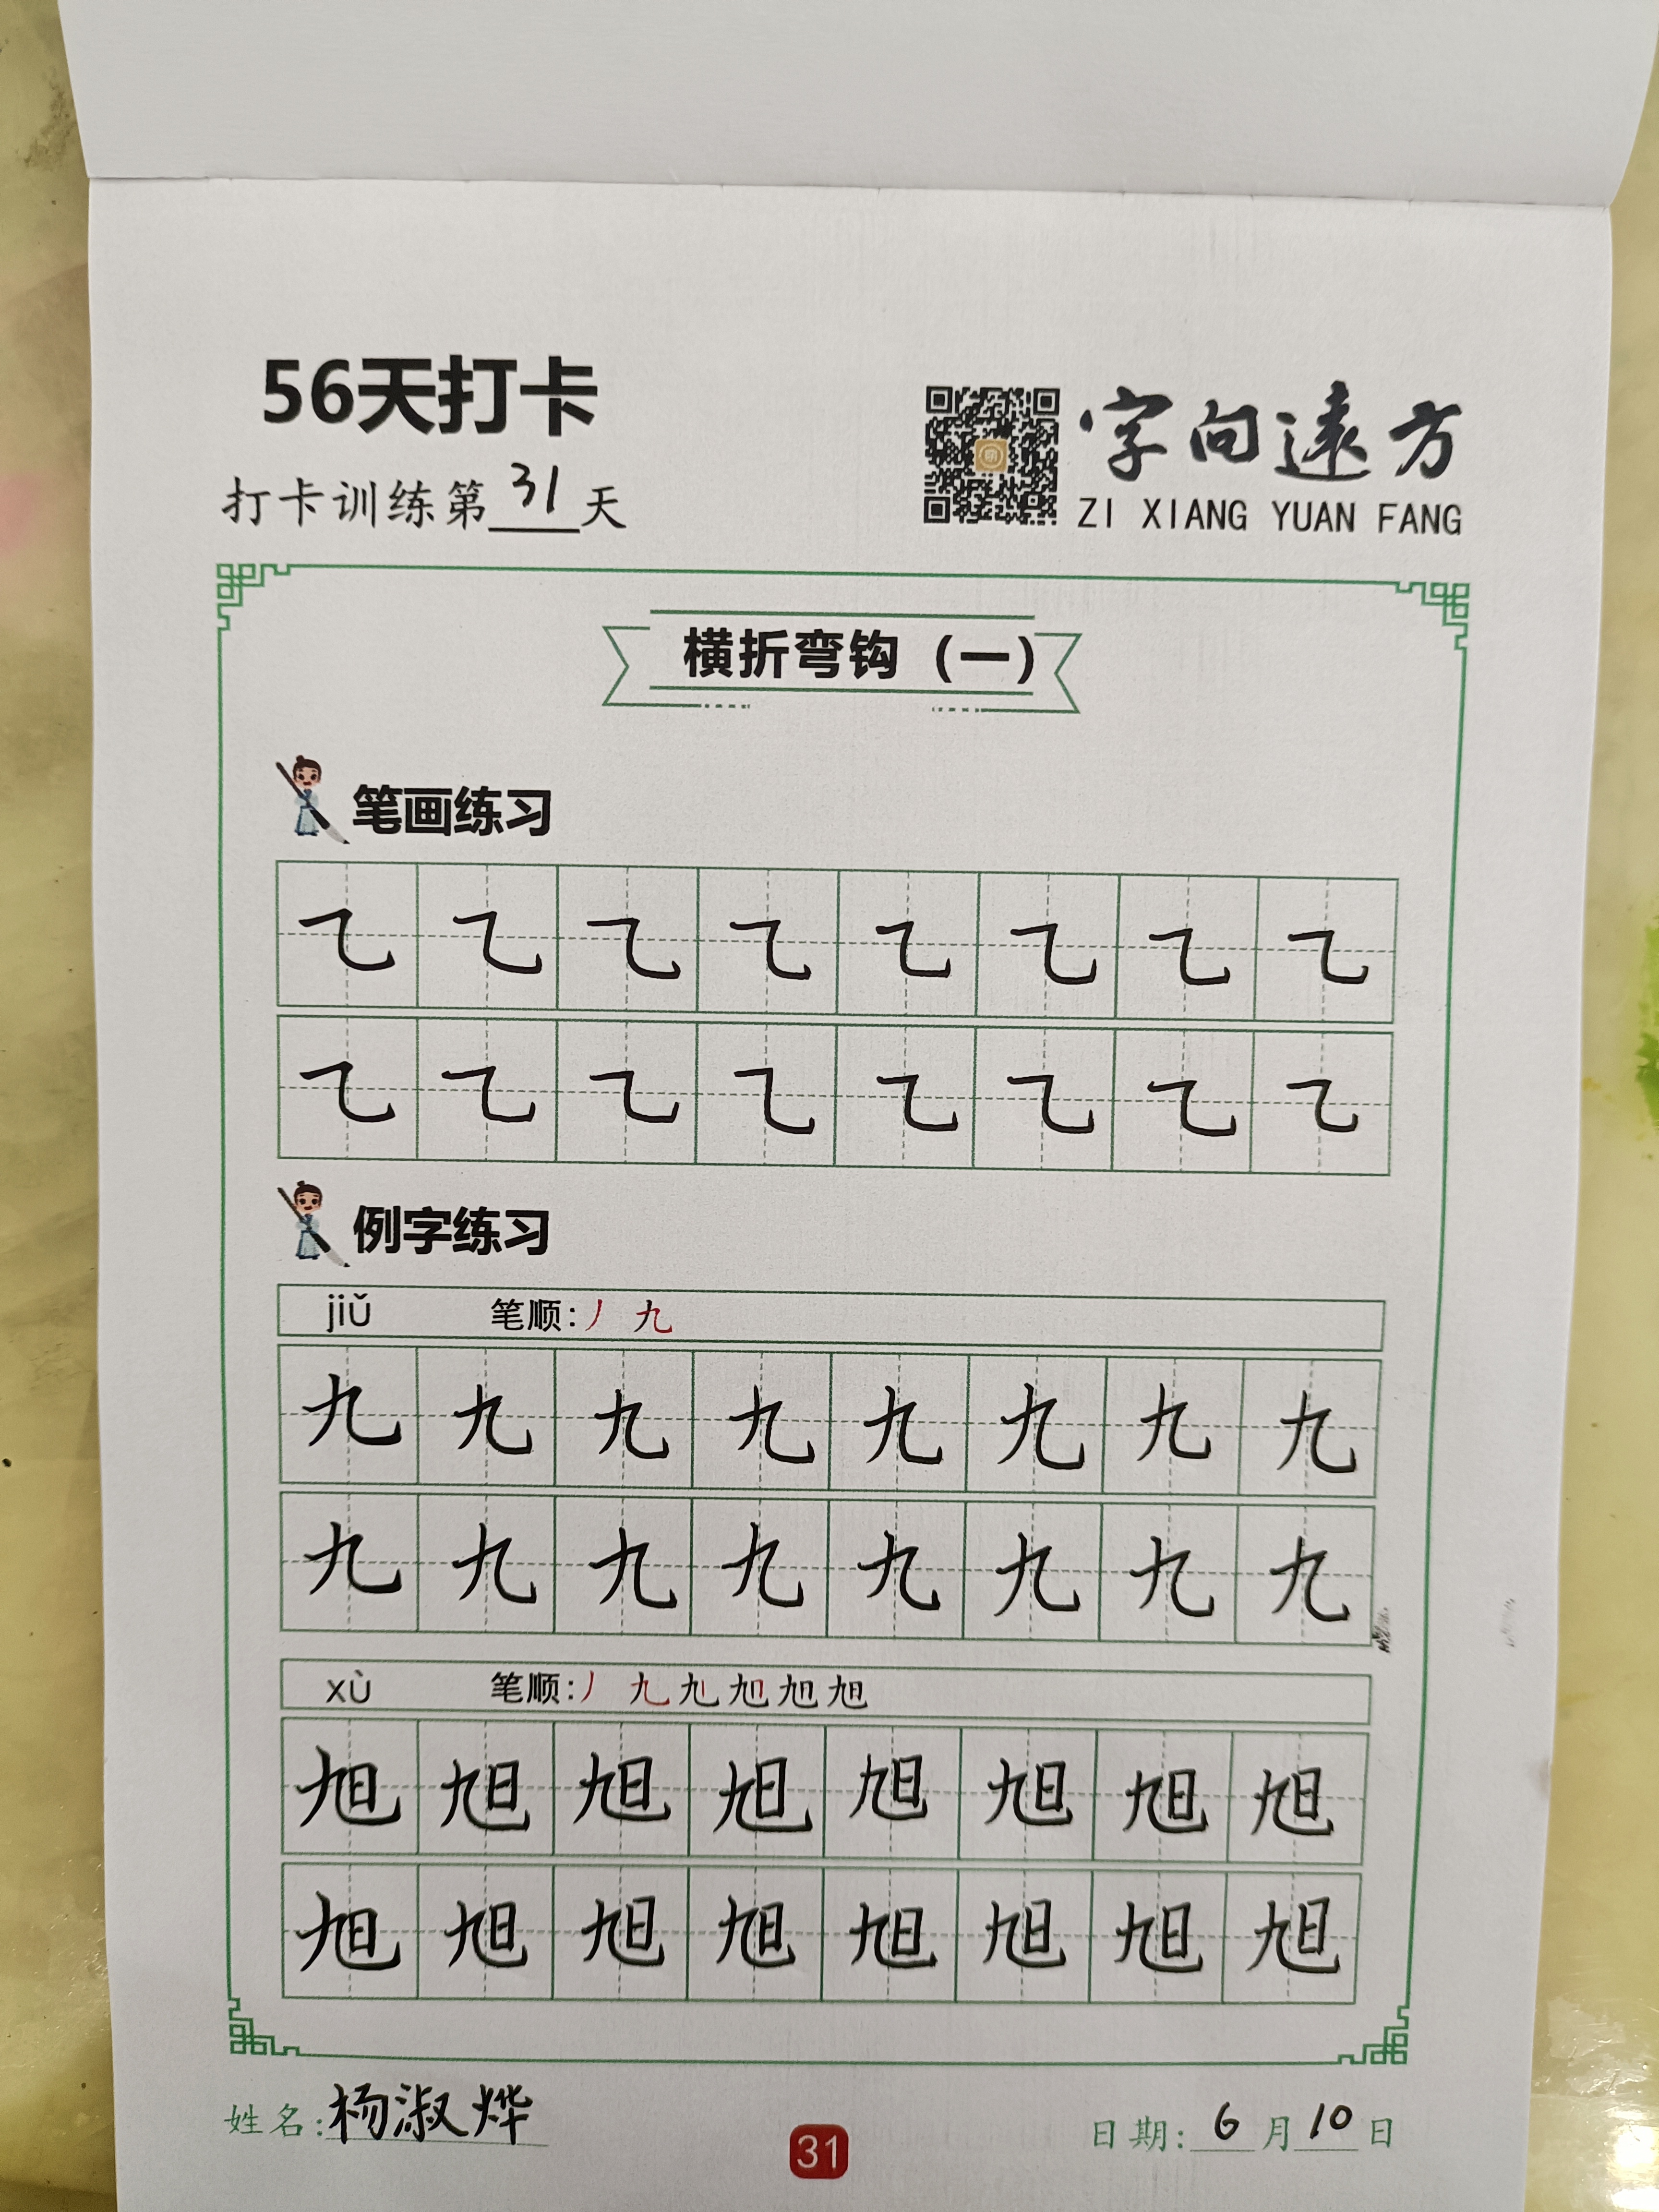 56天打卡
打卡训练第31天
字向遠方
ZI XIANG YUAN FANG
横折弯钩（一）
笔画练习
㇈ ㇈ ㇈ ㇈ ㇈ ㇈ ㇈ ㇈
㇈ ㇈ ㇈ ㇈ ㇈ ㇈ ㇈ ㇈
例字练习
jiǔ 笔顺：丿 九
九 九 九 九 九 九 九 九
九 九 九 九 九 九 九 九
xù 笔顺：丿 九 旭 旭 旭 旭
旭 旭 旭 旭 旭 旭 旭 旭
旭 旭 旭 旭 旭 旭 旭 旭
姓名：杨淑烨
31
日期：6月10日